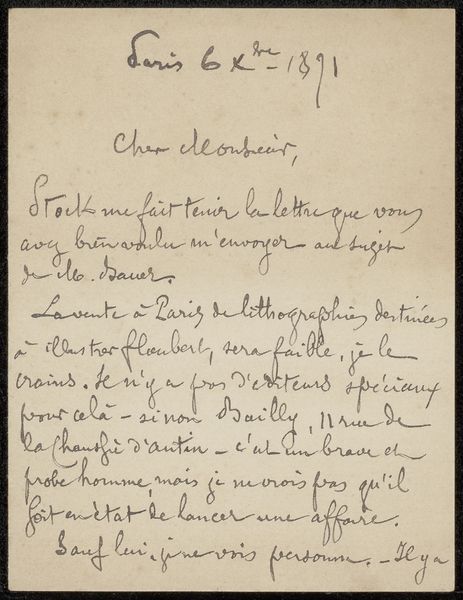 Paris 6 Xbre - 1891
Cher Monsieur,
Stock me fait tenir la lettre que vous
avez bien voulu m'envoyer au sujet
de M. Bauer.
La vente à Paris de lithographies destinées
à illustrer Flaubert, sera faible, je le
crains. Il n'y a pas d'éditeurs spéciaux
pour celà - sinon Bailly, 11 rue de
la Chaussée d'antin - c'est un brave et
probe homme, mais je ne crois pas qu'il
soit en état de lancer une affaire.
Sauf lui, je ne vois personne. - Il y a